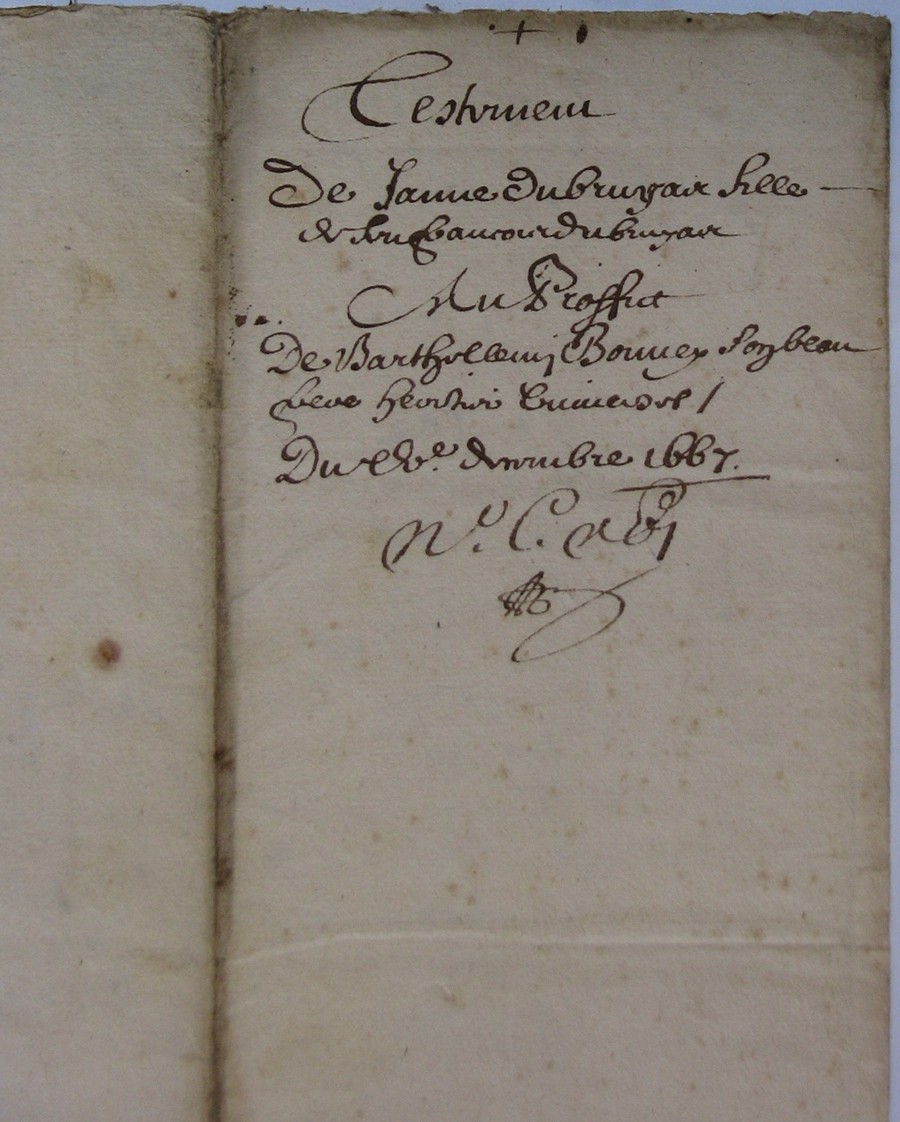 +
Testement
De Janne Dubrugar fille
de feu dubrugar
Au Proffict
De Barthellemy Bonnex Son beau
frere heritier Universel /
Du xve. decembre 1667.
N°. C.